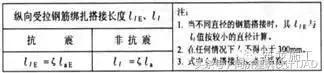 纵向受拉钢筋绑扎搭接长度 lₗE、lₗ
抗 震
非 抗 震
lₗE = ζ laE
lₗ = ζ la
注：
1. 当不同直径的钢筋搭接时，其 lₗE 与
lₗ 值按较小的直径计算。
2. 在任何情况下 lₗ 不得小于 300mm.
3. 式中